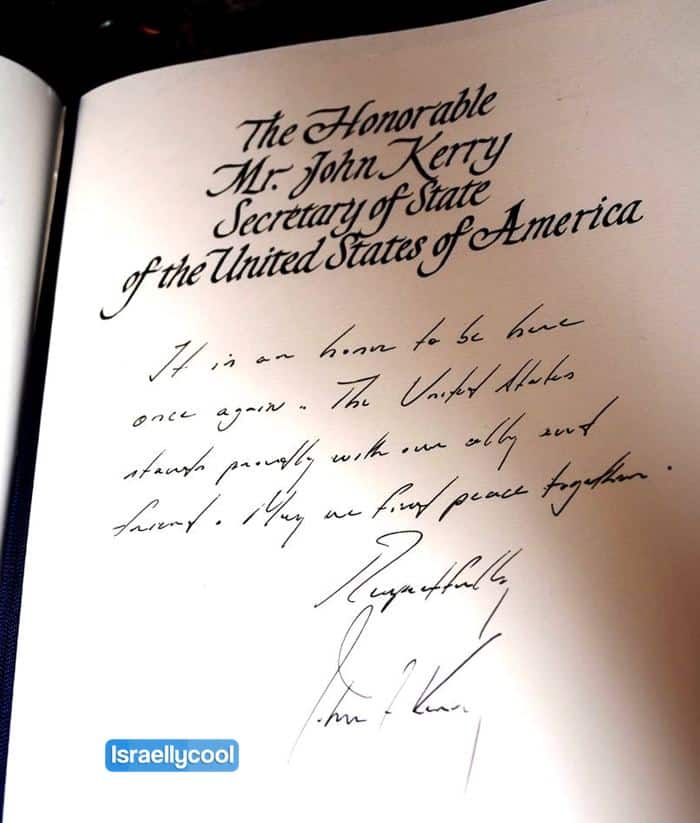 The Honorable
Mr. John Kerry
Secretary of State
of the United States of America
It is an honor to be here
once again. The United States
stands proudly with our ally and
friend. May we find peace together.
Respectfully
John F Kerry
Israellycool